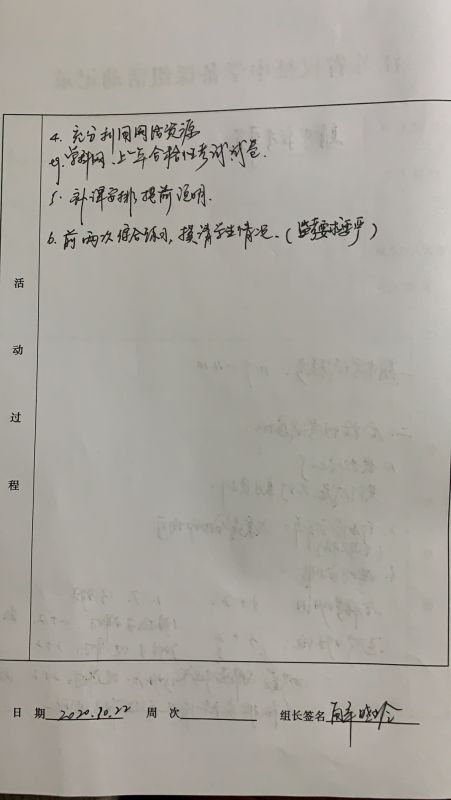 4. 充分利用网络资源
eg. 学科网、上一年合格性考试试卷.
5. 补课安排提前说明.
6. 前两次综合练习, 摸清学生情况. (监考要求严)
活
动
过
程
日 期 2020.10.22 周 次 组长签名